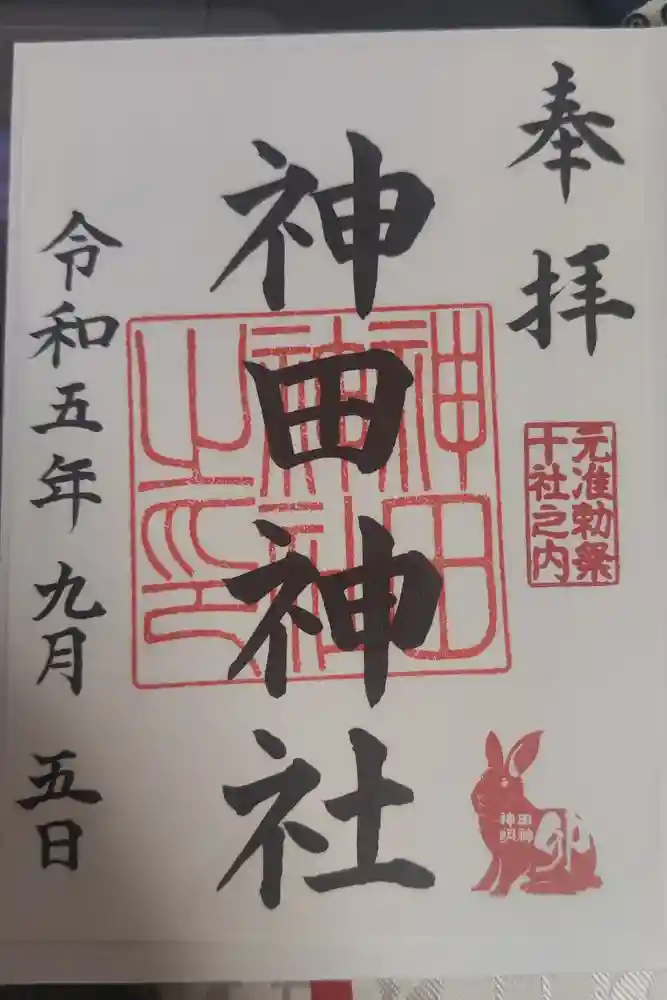 奉拝
元准勅祭
十社之内
神田明神
卯
神田神社
神田
神社
之印
令和五年九月五日